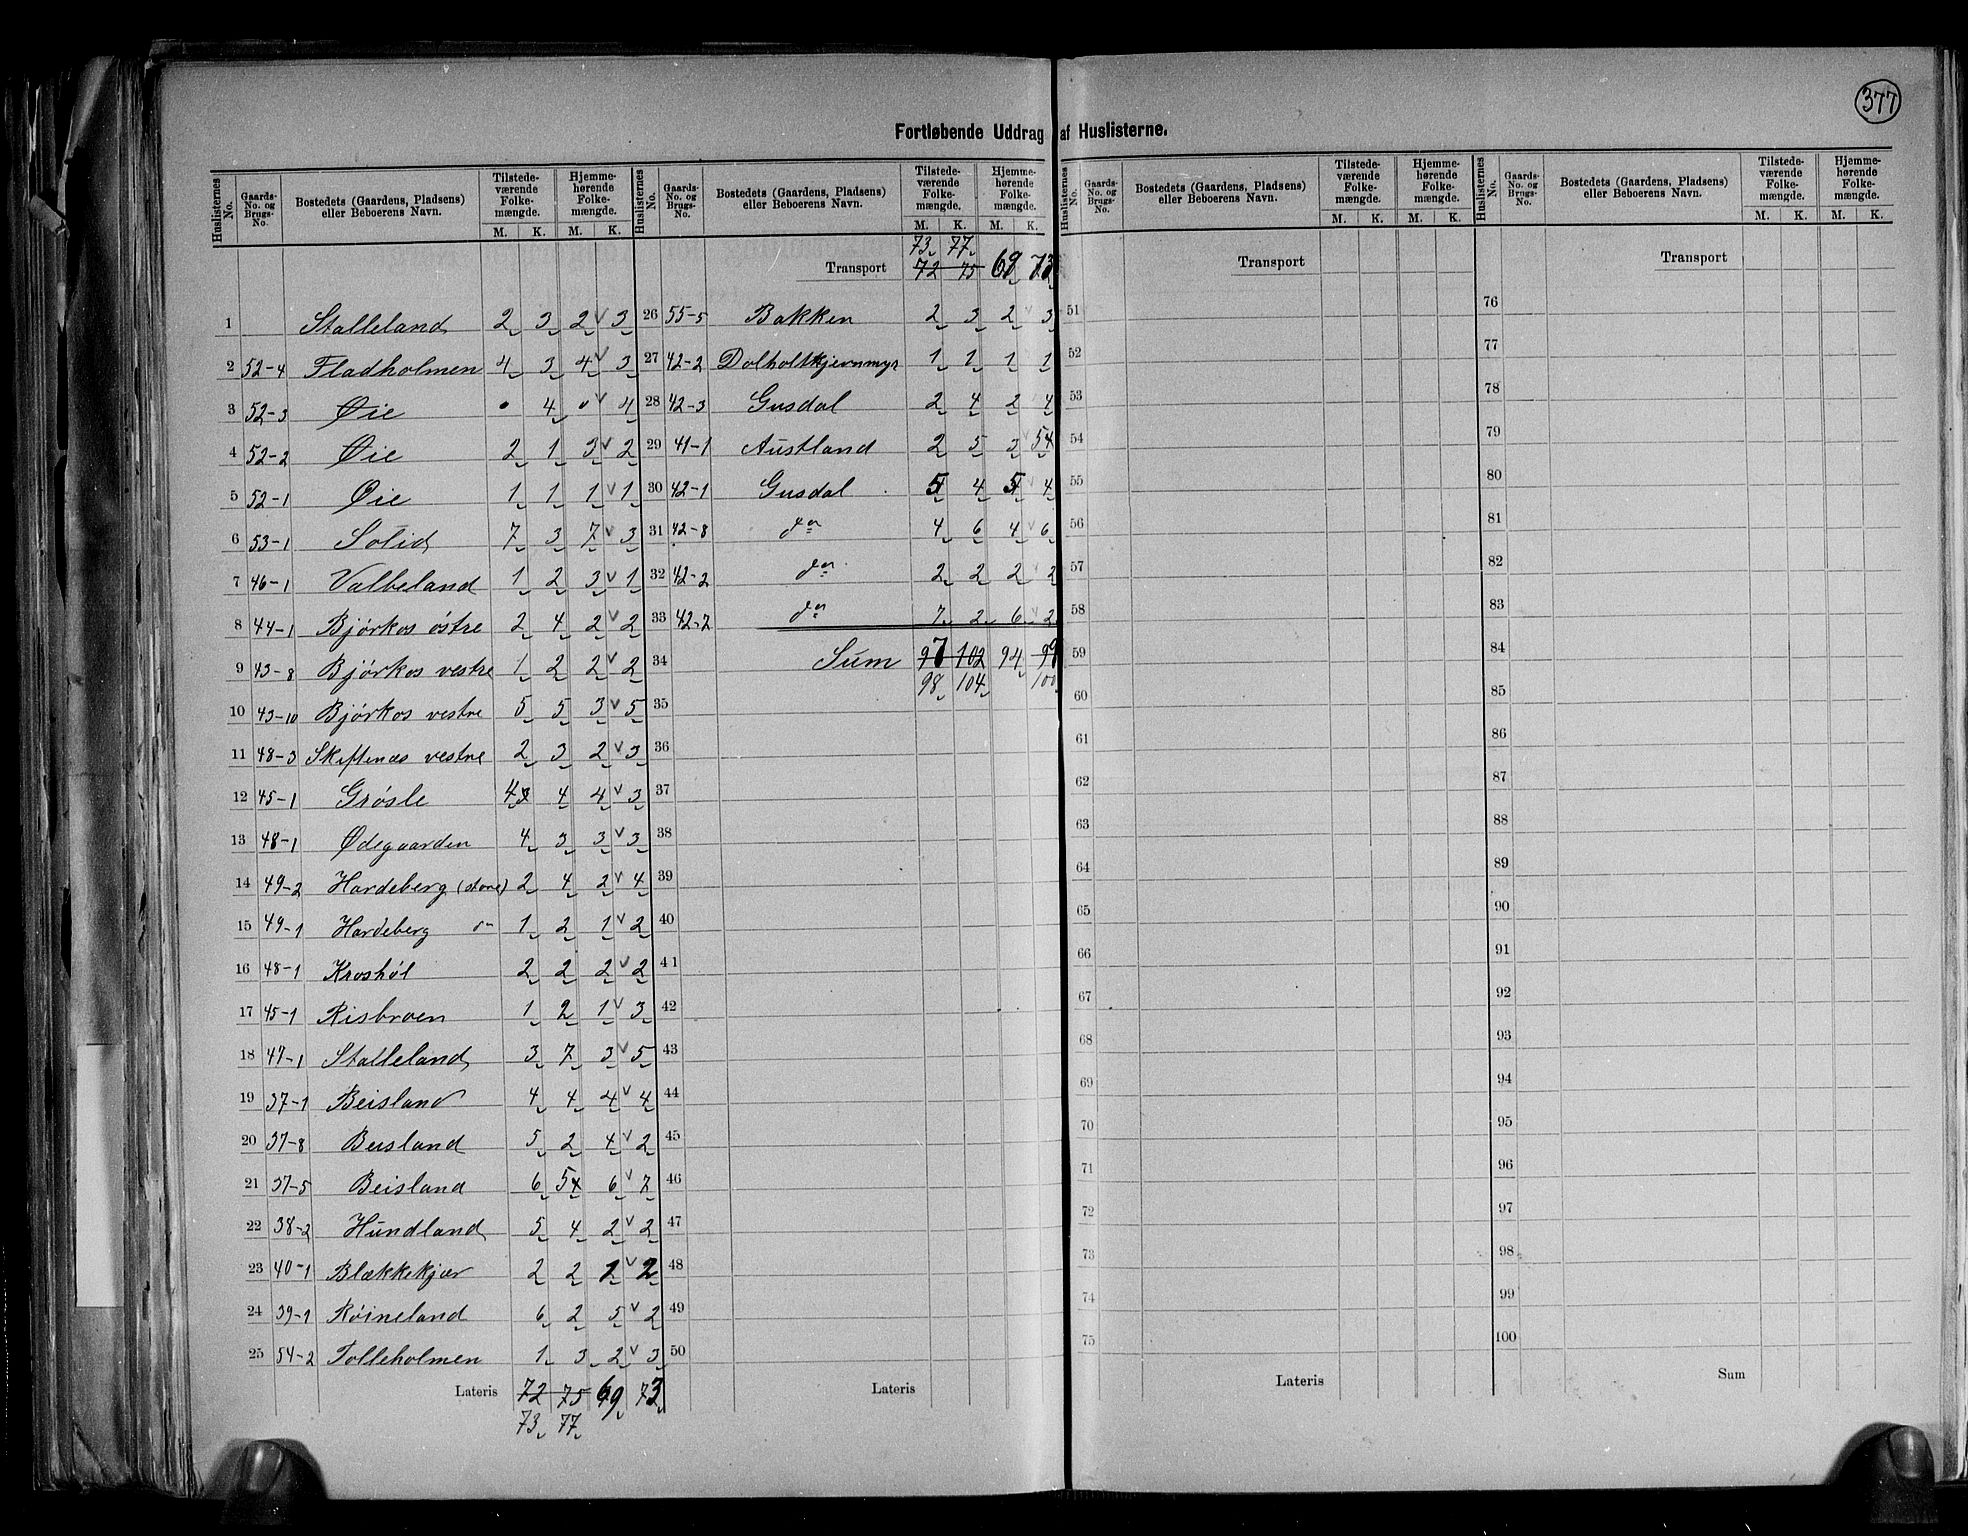 377
Fortløbende Uddrag af Huslisterne.
Huslisternes No. | Gaards-No. og Brugs-No. | Bostedets (Gaardens, Pladsens) eller Beboerens Navn. | Tilstedeværende Folkemængde. M. K. | Hjemmehørende Folkemængde. M. K.
1 Stalleland 2 3 2 v 3
2 52-4 Fladholmen 4 3 4 v 3
3 52-3 Øie • 4 • v 4
4 52-2 Øie 2 1 3 v 2
5 52-1 Øie 1 1 1 v 1
6 53-1 Solid 7 3 7 v 3
7 46-1 Valbeland 1 2 3 v 1
8 44-1 Bjørkos østre 2 4 2 v 2
9 43-8 Bjørkos vestre 1 2 2 v 2
10 43-10 Bjørkos vestre 5 5 3 v 5
11 48-3 Skiftenæs vestre 2 3 2 v 3
12 45-1 Grøsle 4 4 4 v 3
13 48-1 Ødegaarden 4 3 3 v 3
14 49-2 Hardeberg (store) 2 4 2 v 4
15 49-1 Hardeberg do 1 2 1 v 2
16 48-1 Kroshøl 2 2 2 v 2
17 45-1 Risbroen 1 2 1 v 3
18 47-1 Stalleland 3 7 3 v 5
19 37-1 Beisland 4 4 4 v 4
20 37-8 Beisland 5 2 4 v 2
21 37-5 Beisland 6 5 6 v 7
22 38-2 Hundland 5 4 2 v 2
23 40-1 Blækkekjær 2 2 1 v 2
24 39-1 Røineland 6 2 5 v 2
25 54-2 Tolleholmen 1 3 2 v 3
Lateris 72 75 69 73
73 77
Huslisternes No. | Gaards-No. og Brugs-No. | Bostedets (Gaardens, Pladsens) eller Beboerens Navn. | Tilstedeværende Folkemængde. M. K. | Hjemmehørende Folkemængde. M. K.
73 77
Transport 72 75 69 73
26 55-5 Bakken 2 3 2 v 3
27 42-2 Dolholtkjernmyr 1 1 1 1
28 42-3 Gusdal 2 4 2 4
29 41-1 Austland 2 5 3 v 5
30 42-1 Gusdal 5 4 5 v 4
31 42-8 do 4 6 4 v 6
32 42-2 do 2 2 2 2
33 42-2 do 7 2 6 v 2
34 Sum 97 102 94 99
98 104 100
35
36
37
38
39
40
41
42
43
44
45
46
47
48
49
50
Lateris
Huslisternes No. | Gaards-No. og Brugs-No. | Bostedets (Gaardens, Pladsens) eller Beboerens Navn. | Tilstedeværende Folkemængde. M. K. | Hjemmehørende Folkemængde. M. K.
Transport
51
52
53
54
55
56
57
58
59
60
61
62
63
64
65
66
67
68
69
70
71
72
73
74
75
Lateris
Huslisternes No. | Gaards-No. og Brugs-No. | Bostedets (Gaardens, Pladsens) eller Beboerens Navn. | Tilstedeværende Folkemængde. M. K. | Hjemmehørende Folkemængde. M. K.
Transport
76
77
78
79
80
81
82
83
84
85
86
87
88
89
90
91
92
93
94
95
96
97
98
99
100
Sum